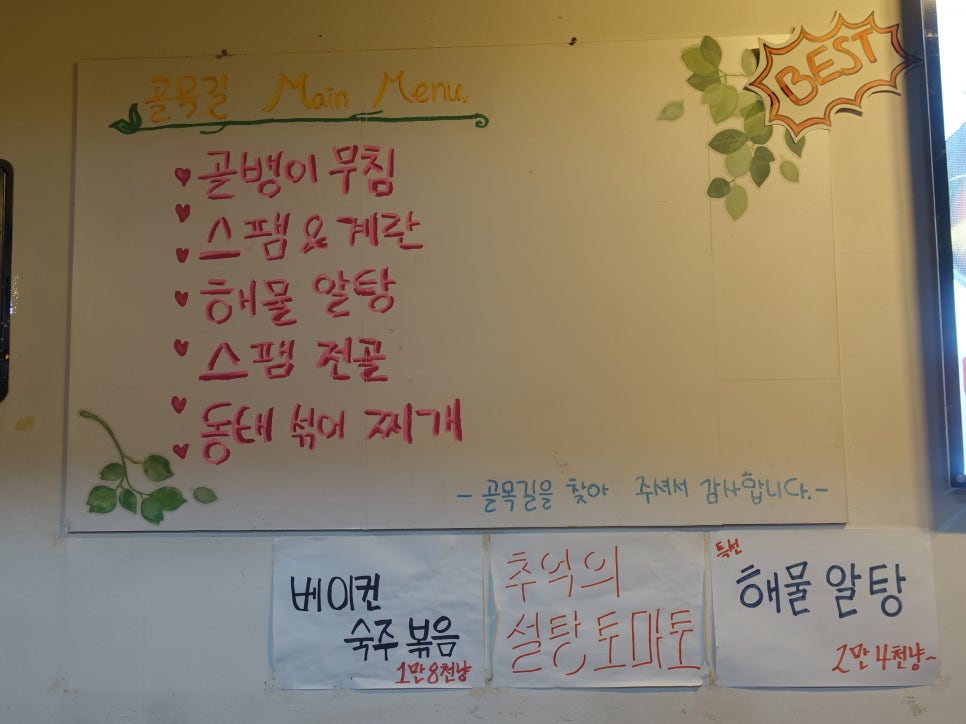 골목길 Main Menu.
BEST
골뱅이 무침
스팸 요 계란
해물 알탕
스팸 전골
동태 섞어 찌개
- 골목길을 찾아 주셔서 감사합니다.-
베이컨
숙주 볶음
1만 8천냥
추억의
설탕 토마토
특선
해물 알탕
2만 4천냥~